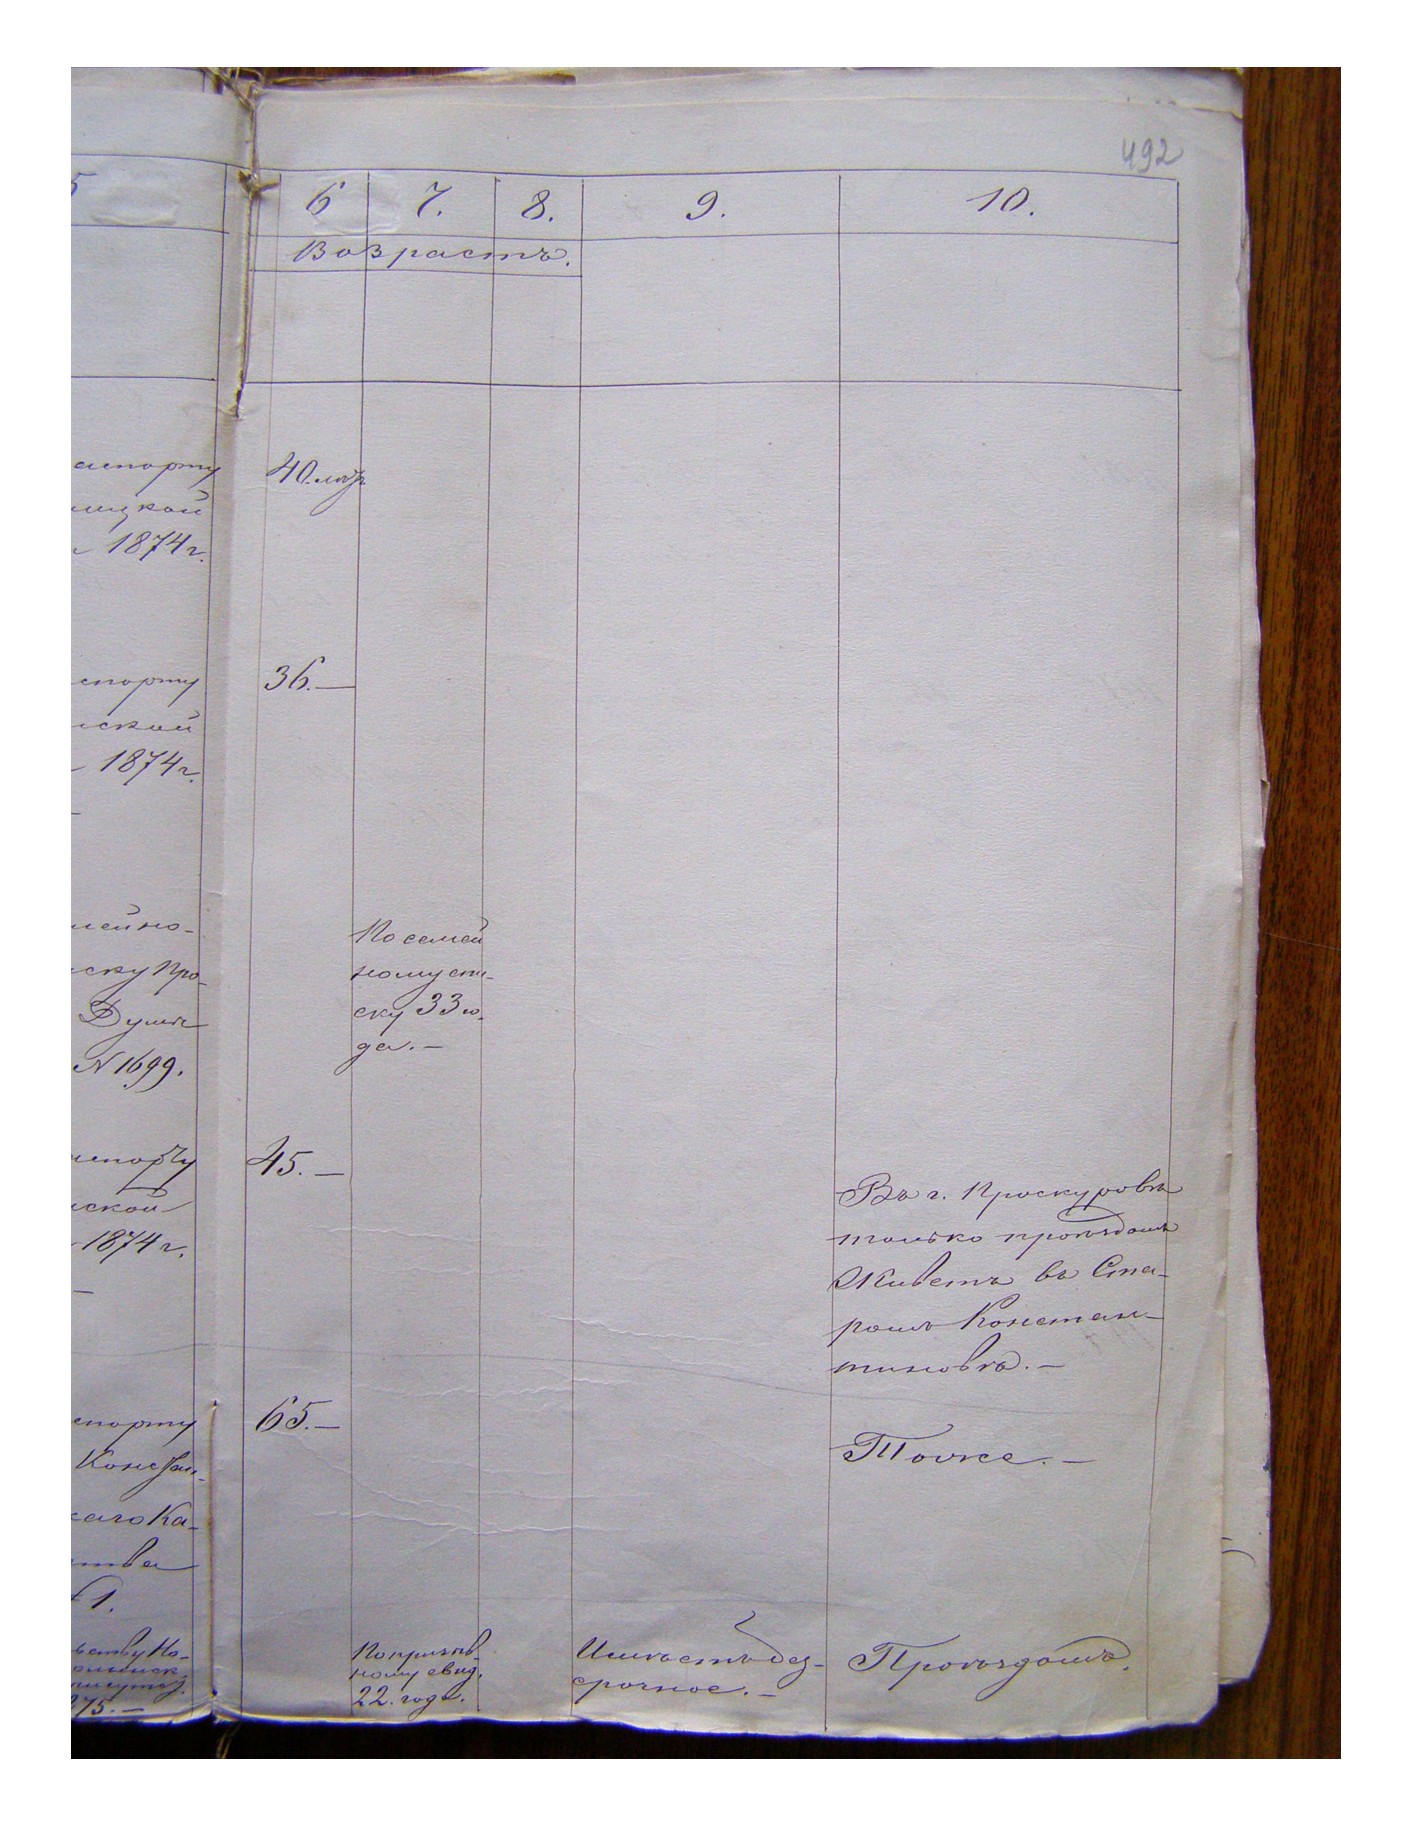 492
5 6 7. 8. 9. 10.
Возрастъ.
аспорту
мицкой
1874 г.
40 лѣтъ
спорту
нской
1874 г.
36.—
мейно-
иску Про-
Думы
№ 1699.
По семей
ному спи-
ску 33 го-
да.—
аспорту
нской
1874 г.
45.—
Въ г. Проскуровѣ
только проѣздомъ
Живетъ въ Ста-
ромъ Констан-
тиновѣ.—
спорту
Констан-
каго Ка-
ства
№ 1.
65.—
Тоже.—
ьству Но-
275.—
По призыв
ному свид.
22. года.
Имѣетъ без-
срочное.—
Проѣздомъ.